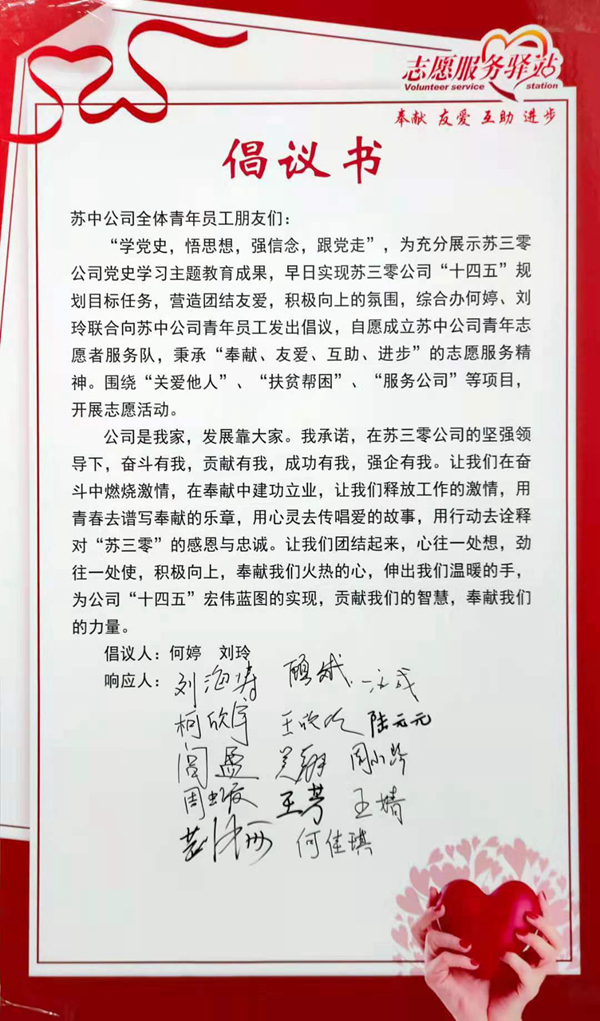 志愿服务驿站
Volunteer service station
奉献 友爱 互助 进步
倡议书
苏中公司全体青年员工朋友们：
“学党史，悟思想，强信念，跟党走”，为充分展示苏三零
公司党史学习主题教育成果，早日实现苏三零公司“十四五”规
划目标任务，营造团结友爱，积极向上的氛围，综合办何婷、刘
玲联合向苏中公司青年员工发出倡议，自愿成立苏中公司青年志
愿者服务队，秉承“奉献、友爱、互助、进步”的志愿服务精
神。围绕“关爱他人”、“扶贫帮困”、“服务公司”等项目，
开展志愿活动。
公司是我家，发展靠大家。我承诺，在苏三零公司的坚强领
导下，奋斗有我，贡献有我，成功有我，强企有我。让我们在奋
斗中燃烧激情，在奉献中建功立业，让我们释放工作的激情，用
青春去谱写奉献的乐章，用心灵去传唱爱的故事，用行动去诠释
对“苏三零”的感恩与忠诚。让我们团结起来，心往一处想，劲
往一处使，积极向上，奉献我们火热的心，伸出我们温暖的手，
为公司“十四五”宏伟蓝图的实现，贡献我们的智慧，奉献我们
的力量。
倡议人：何婷 刘玲
响应人：刘海涛
柯欣宇 陆元元
阎盈
王芳 王婧
何佳琪